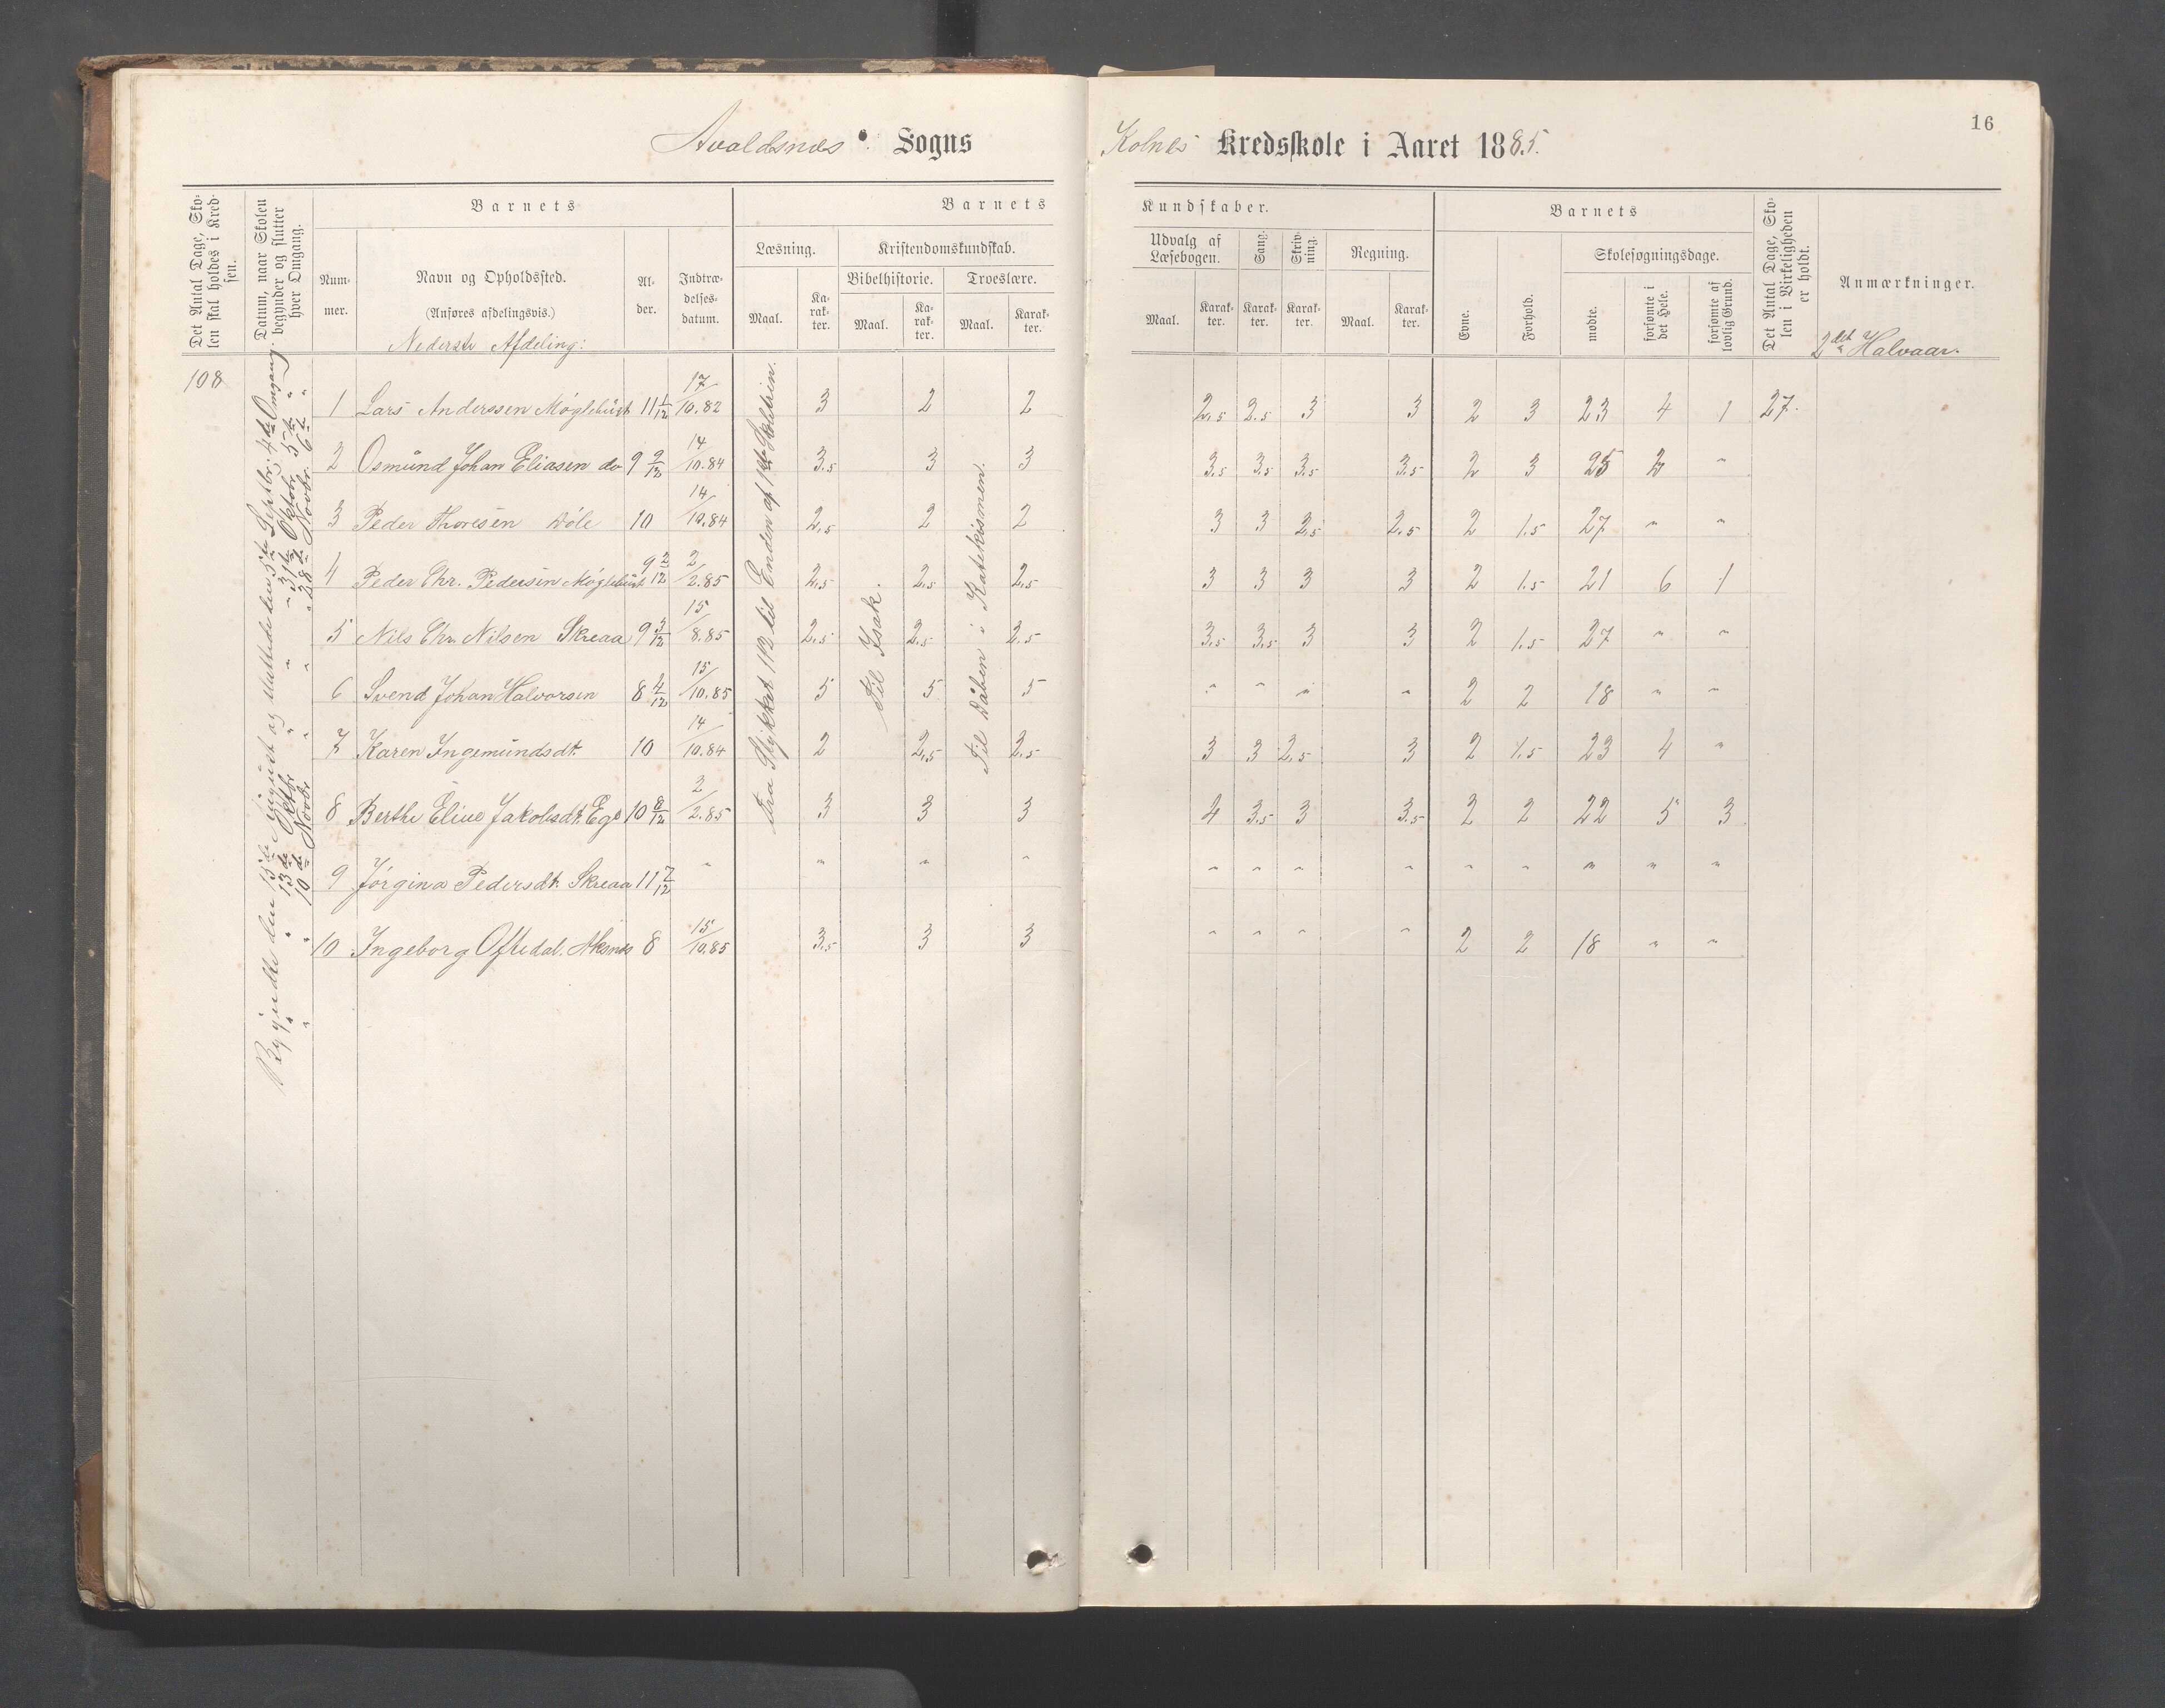 Avaldsnes Sogns
Kolnes Kredsskole i Aaret 1885.
16
Det Antal Dage, Sko-
len skal holdes i Kred-
sen.
Datum, naar Skolen
begynder og slutter
hver Omgang.
Barnets
Num-
mer.
Navn og Opholdssted.
(Anføres afdelingsvis.)
Nederste Afdeling:
Al-
der.
Indtræ-
delses-
datum.
Barnets
Læsning.
Maal.
Ka-
rak-
ter.
Kristendomskundskab.
Bibelhistorie.
Maal.
Ka-
rak-
ter.
Troeslære.
Maal.
Karak-
ter.
Kundskaber.
Udvalg af
Læsebogen.
Maal.
Karak-
ter.
Sang.
Karak-
ter.
Skriv-
ning.
Karak-
ter.
Regning.
Maal.
Karak-
ter.
Barnets
Evne.
Forhold.
Skolesøgningsdage.
mødte.
forsømte i
det Hele.
forsømte af
lovlig Grund.
Det Antal Dage, Sko-
len i Virkeligheden
er holdt.
Anmærkninger.
2det Halvaar.
108
Begyndte den 15de August og sluttede den 5te Septbr. 4de Omgang.
" " 13de Oktbr " " " 31te Oktobr. 5te "
" " 10de Novbr " " " 28de Novbr. 6te "
Fra Stykket 113 til Enden af 1ste Skoletrin.
Til Isak.
Til Dåben i Katekismen.
1 Lars Anderssen Møglebust 11 1/12 17/10.82 3 2 2 2,5 2,5 3 3 2 3 23 4 1 27.
2 Osmund Johan Eliasen do 9 9/12 14/10.84 3,5 3 3 3,5 3,5 3,5 3,5 2 3 25 2 "
3 Peder Thoresen Døle 10 14/10.84 2,5 2 2 3 3 2,5 2,5 2 1.5 27 " "
4 Peder Chr. Pedersen Møglebust 9 3/12 2/2.85 2,5 2,5 2,5 3 3 3 3 2 1.5 21 6 1
5 Nils Chr. Nilsen Skreaa 9 3/12 15/8.85 2,5 2,5 2,5 3,5 3,5 3 3 2 1.5 27 " "
6 Svend Johan Halvorsen 8 4/12 15/10.85 5 5 5 " " " " 2 2 18 " "
7 Karen Ingemundsdt. 10 14/10.84 2 2,5 2,5 3 3 2,5 3 2 1.5 23 4 "
8 Berthe Eline Jakobsdt. Ege 10 8/12 2/2.85 3 3 3 4 3,5 3 3,5 2 2 22 5 3
9 Jørgina Pedersdt. Skreaa 11 7/12 " " " " " " " " " " " " "
10 Ingeborg Oftedal. Aksnes 8 15/10.85 3,5 3 3 " " " " 2 2 18 " "